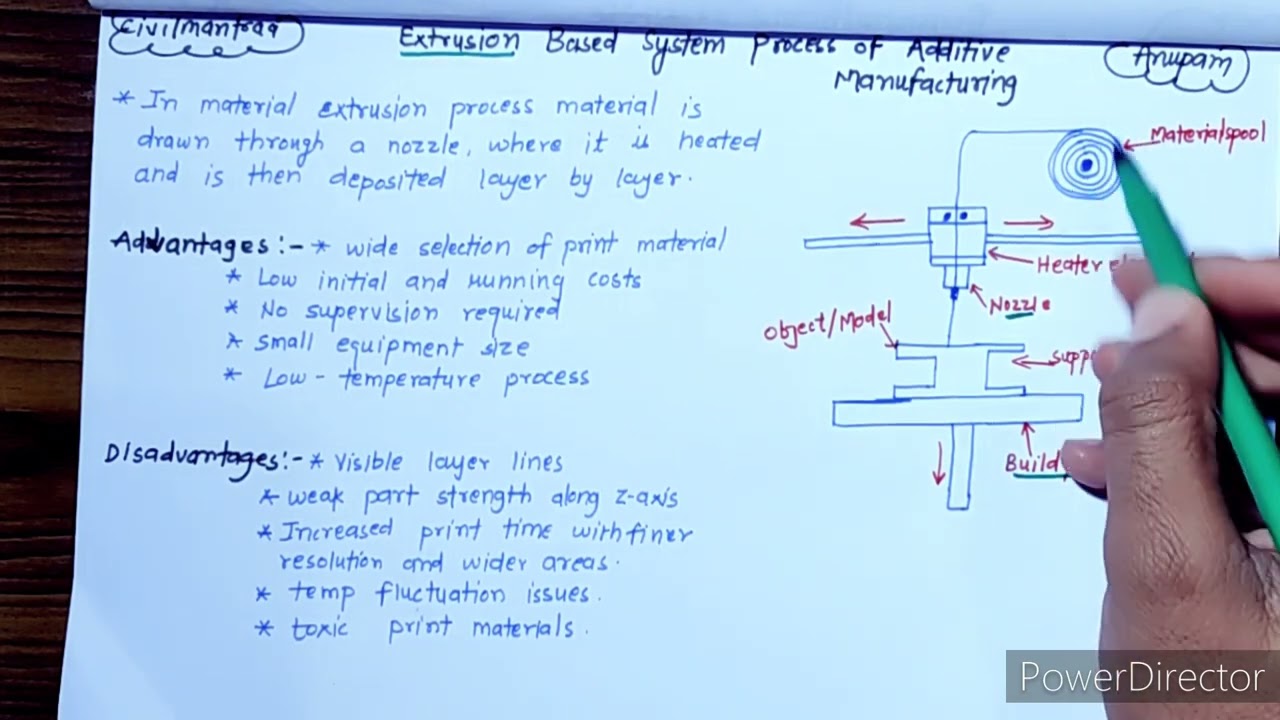 Civilmantraa
Extrusion Based System Process of Additive
Manufacturing
Anupam
* In material extrusion process material is
drawn through a nozzle, where it is heated
and is then deposited layer by layer.
Advantages:- * wide selection of print material
* Low initial and running costs
* No supervision required
* small equipment size
* Low-temperature process
Disadvantages:- * Visible layer lines
* weak part strength along z-axis
* Increased print time with finer
resolution and wider areas.
* temp fluctuation issues.
* toxic print materials.
Material spool
Heater
Nozzle
Object/Model
Build
PowerDirector